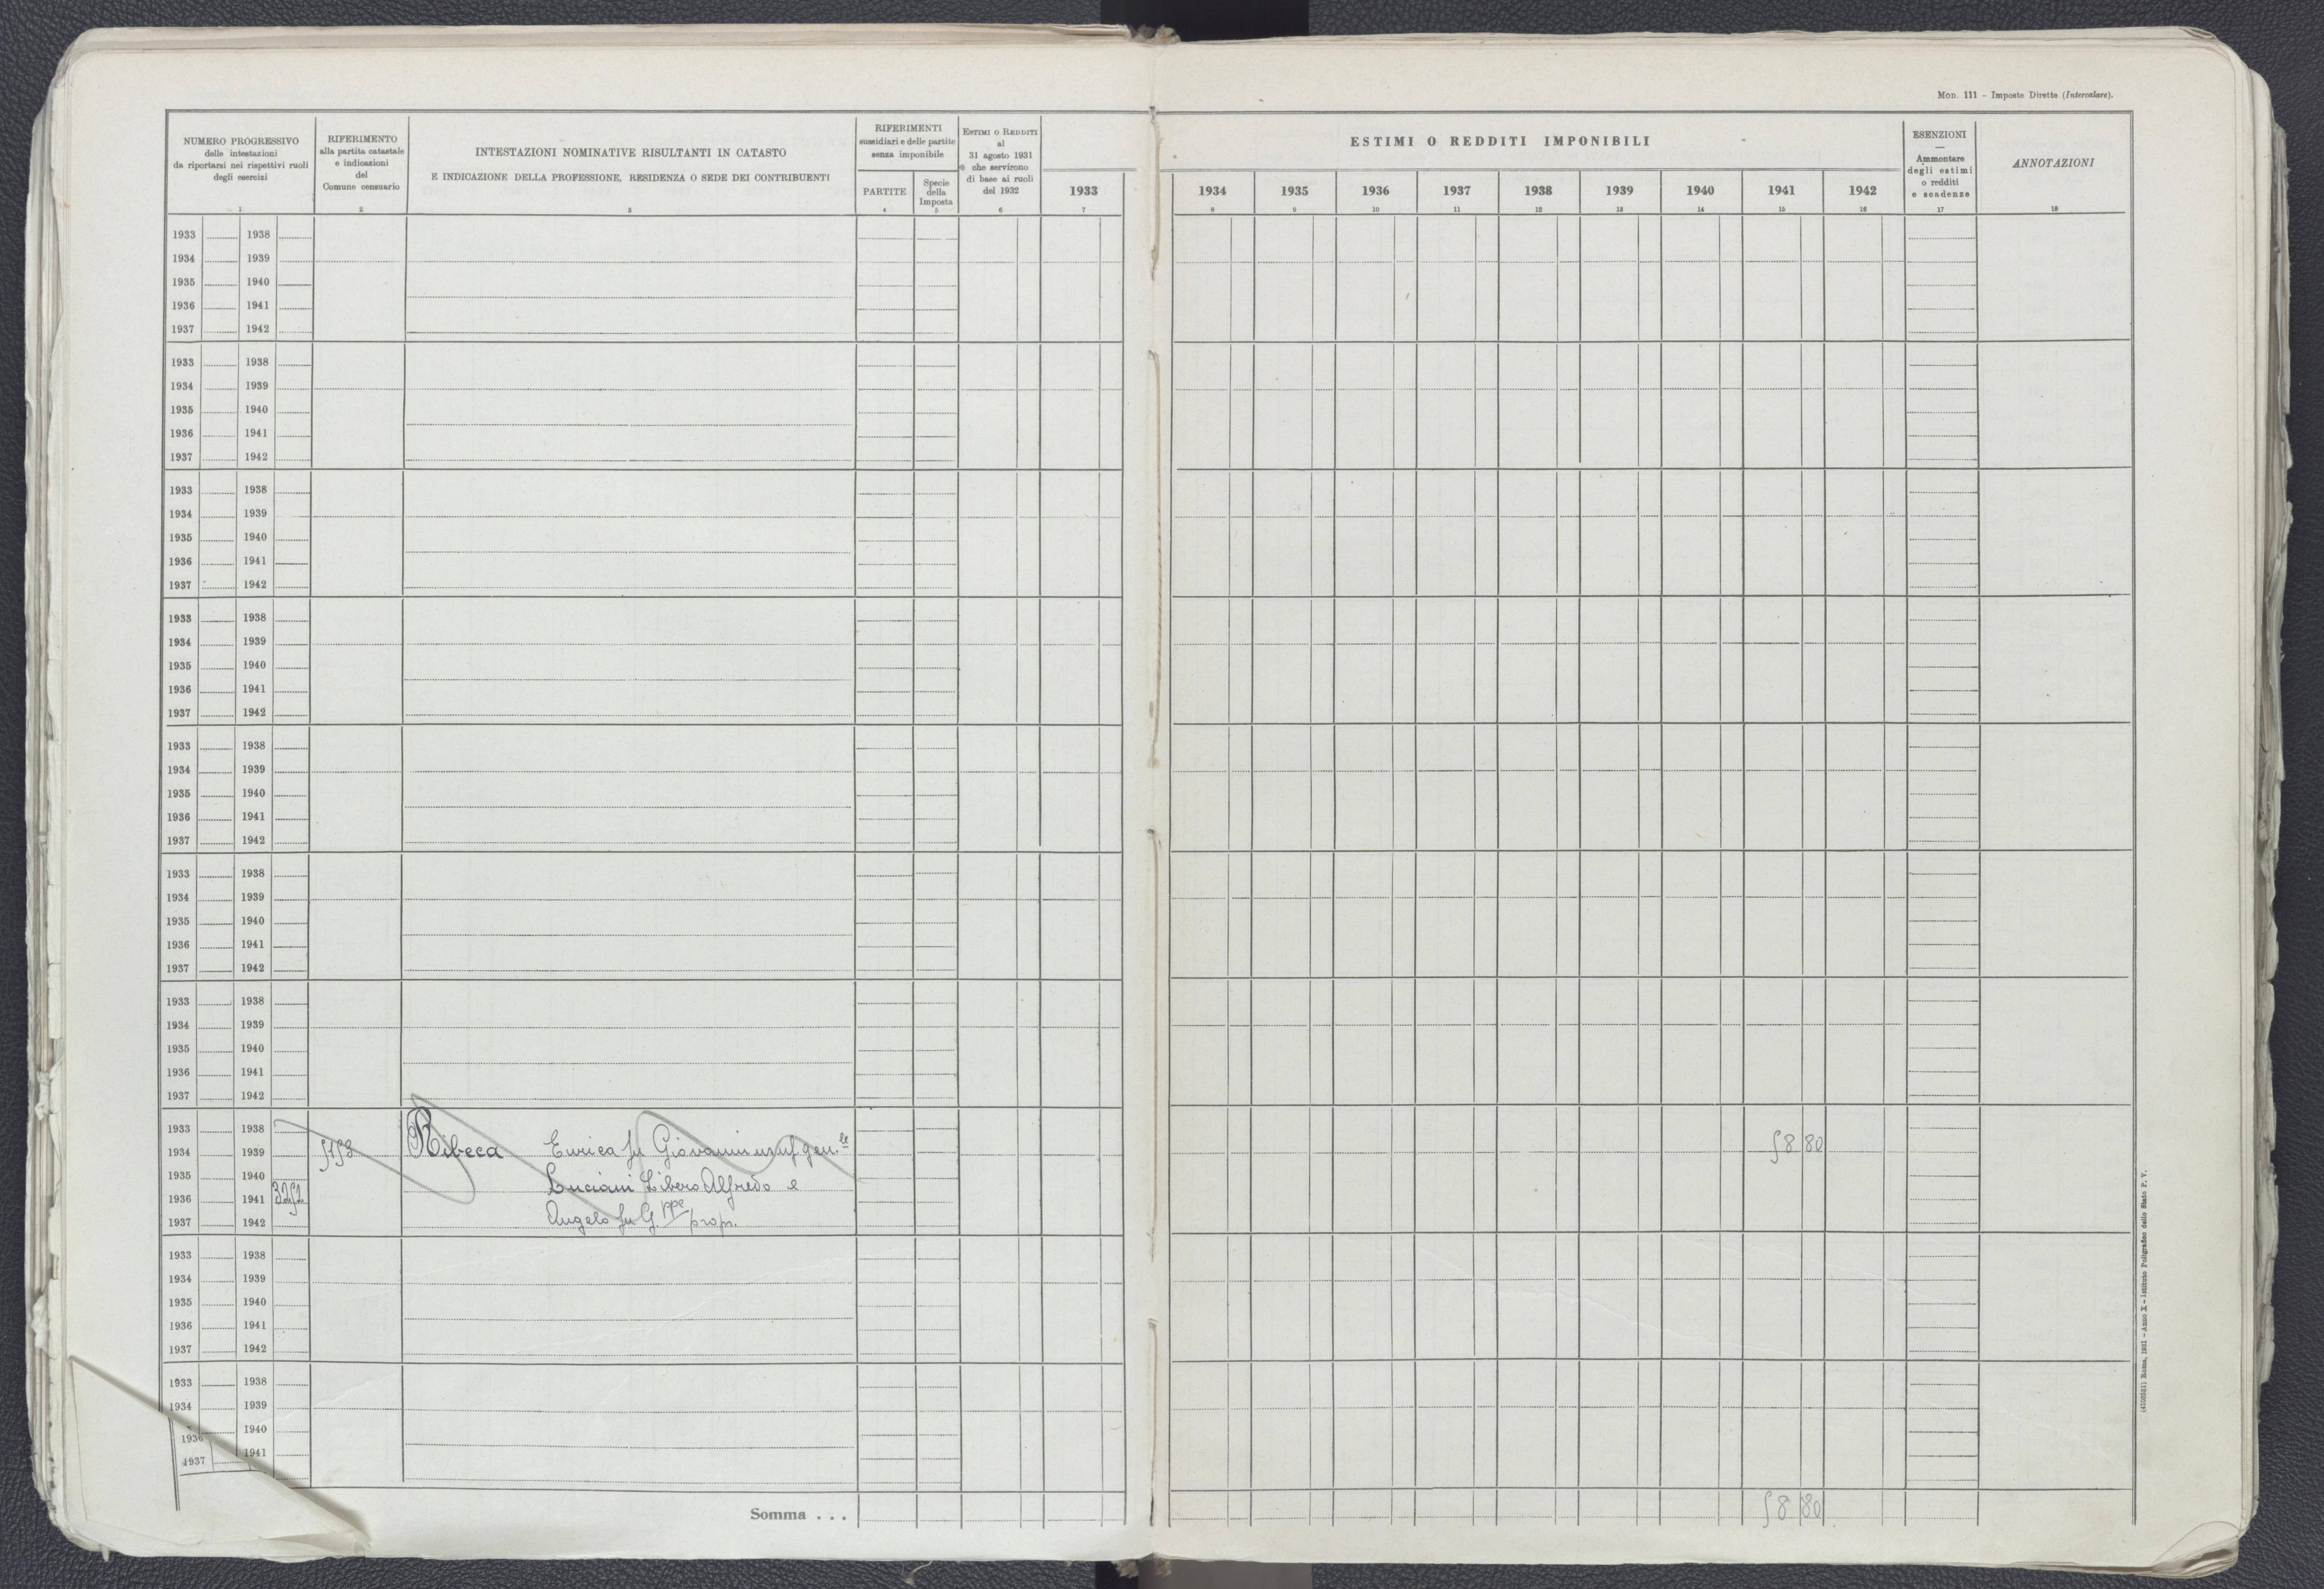 Mod. 111 - Imposte Dirette (Intercalare).
NUMERO PROGRESSIVO
delle intestazioni
da riportarsi nei rispettivi ruoli
degli esercizi
1
RIFERIMENTO
alla partita catastale
e indicazioni
del
Comune censuario
2
INTESTAZIONI NOMINATIVE RISULTANTI IN CATASTO
E INDICAZIONE DELLA PROFESSIONE, RESIDENZA O SEDE DEI CONTRIBUENTI
3
RIFERIMENTI
sussidiari e delle partite
senza imponibile
PARTITE
4
Specie
della
Imposta
5
Estimi o Redditi
al
31 agosto 1931
che servirono
di base ai ruoli
del 1932
6
1933
7
ESTIMI O REDDITI IMPONIBILI
1934 1935 1936 1937 1938 1939 1940 1941 1942
8 9 10 11 12 13 14 15 16
ESENZIONI
—
Ammontare
degli estimi
o redditi
e scadenze
17
ANNOTAZIONI
18
1933 1938
1934 1939
1935 1940
1936 1941
1937 1942
1933 1938
1934 1939
1935 1940
1936 1941
1937 1942
1933 1938
1934 1939
1935 1940
1936 1941
1937 1942
1933 1938
1934 1939
1935 1940
1936 1941
1937 1942
1933 1938
1934 1939
1935 1940
1936 1941
1937 1942
1933 1938
1934 1939
1935 1940
1936 1941
1937 1942
1933 1938
1934 1939
1935 1940
1936 1941
1937 1942
1933 1938
1934 1939 Ribeca Enrica fu Giovanni usuf gen.le 58 80
1935 1940 Luciani Libero Alfredo e
1936 1941
1937 1942 Angelo fu G.ppe prop.
1933 1938
1934 1939
1935 1940
1936 1941
1937 1942
1933 1938
1934 1939
1940
1936 1941
1937
Somma . . . 58 80
(4105531) Roma, 1931 - Anno X - Istituto Poligrafico dello Stato P. V.